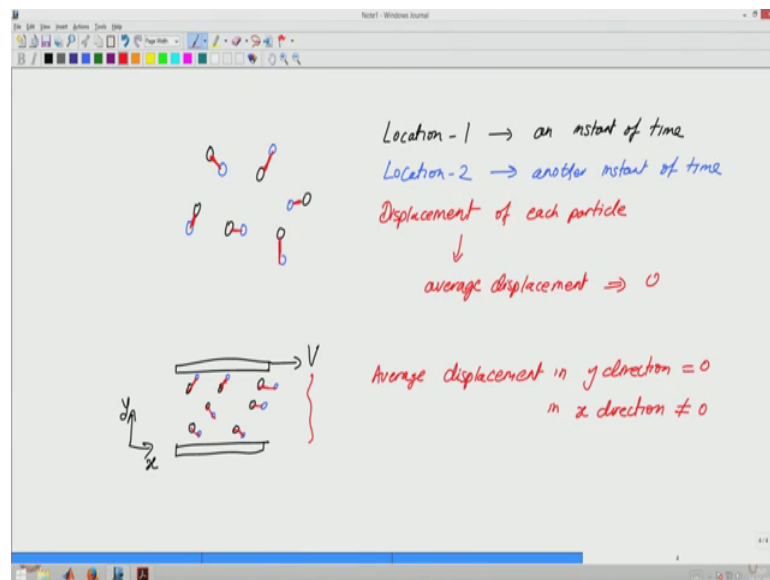 Note1 - Windows Journal
File Edit View Insert Actions Tools Help
Page Width
B I
Location-1 → an instant of time
Location-2 → another instant of time
Displacement of each particle
↓
average displacement ⇒ 0
V
y
x
Average displacement in y direction = 0
in x direction ≠ 0
4/4
4